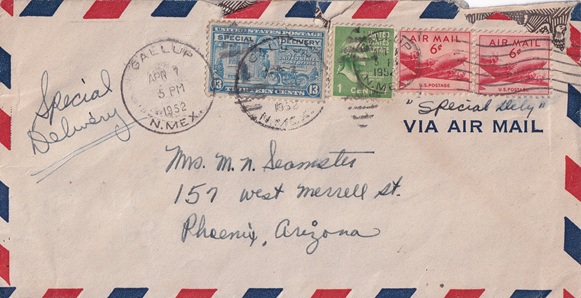 GALLUP
APR 7
5 PM
1952
N. MEX.
UNITED STATES POSTAGE
SPECIAL DELIVERY
13 THIRTEEN CENTS 13
1952
N. MEX.
1 CENT
1952
AIR MAIL
6¢
U.S. POSTAGE
AIR MAIL
6¢
U.S. POSTAGE
Special
Delivery
"Special Dely"
VIA AIR MAIL
Mrs. M. N. Seamster
157 West Merrell St.
Phoenix, Arizona